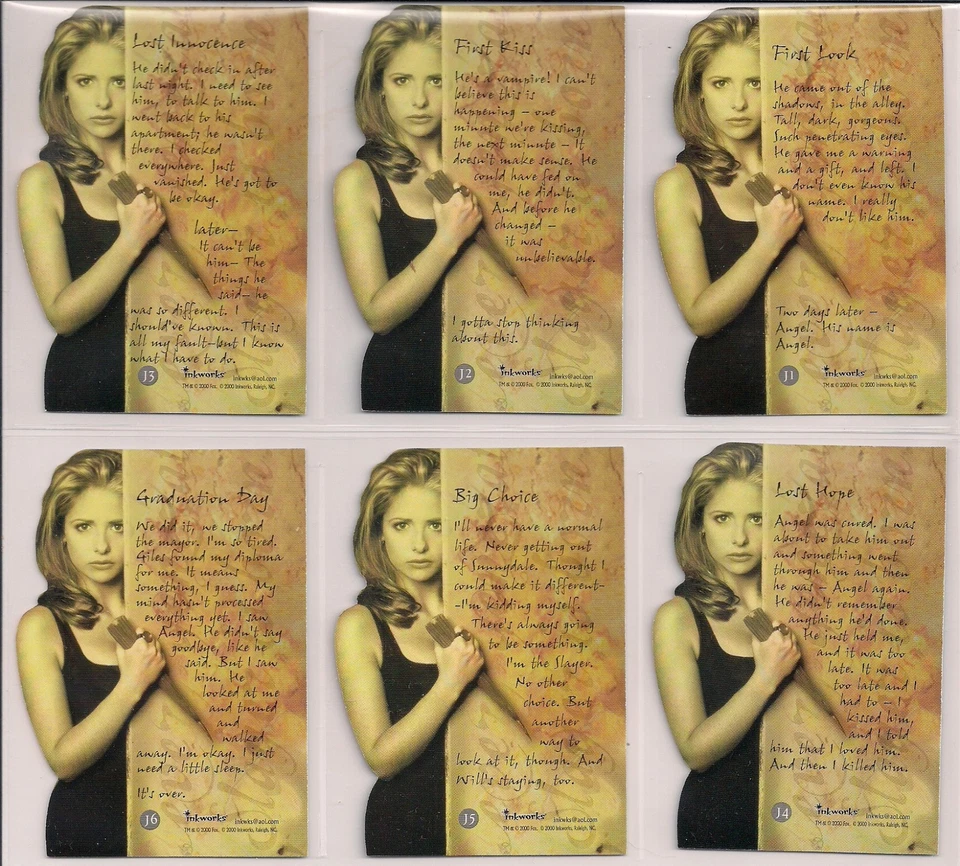 Lost Innocence
He didn't check in after
last night. I need to see
him, to talk to him. I
went back to his
apartment; he wasn't
there. I checked
everywhere. Just
vanished. He's got to
be okay.
later—
It can't be
him— The
things he
said— he
was so different. I
should've known. This is
all my fault—but I know
what I have to do.
J3
inkworks
inkwks@aol.com
TM & © 2000 Fox. © 2000 Inkworks, Raleigh, NC.
First Kiss
He's a vampire! I can't
believe this is
happening – one
minute we're kissing,
the next minute – It
doesn't make sense. He
could have fed on
me, he didn't.
And before he
changed –
it was
unbelievable.
I gotta stop thinking
about this.
J2
inkworks
inkwks@aol.com
TM & © 2000 Fox. © 2000 Inkworks, Raleigh, NC.
First Look
He came out of the
shadows, in the alley.
Tall, dark, gorgeous.
Such penetrating eyes.
He gave me a warning
and a gift, and left. I
don't even know his
name. I really
don't like him.
Two days later –
Angel. His name is
Angel.
J1
inkworks
inkwks@aol.com
TM & © 2000 Fox. © 2000 Inkworks, Raleigh, NC.
Graduation Day
We did it, we stopped
the mayor. I'm so tired.
Giles found my diploma
for me. It means
something, I guess. My
mind hasn't processed
everything yet. I saw
Angel. He didn't say
goodbye, like he
said. But I saw
him. He
looked at me
and turned
and
walked
away. I'm okay. I just
need a little sleep.
It's over.
J6
inkworks
inkwks@aol.com
TM & © 2000 Fox. © 2000 Inkworks, Raleigh, NC.
Big Choice
I'll never have a normal
life. Never getting out
of Sunnydale. Thought I
could make it different-
-I'm kidding myself.
There's always going
to be something.
I'm the Slayer.
No other
choice. But
another
way to
look at it, though. And
Will's staying, too.
J5
inkworks
inkwks@aol.com
TM & © 2000 Fox. © 2000 Inkworks, Raleigh, NC.
Lost Hope
Angel was cured. I was
about to take him out
and something went
through him and then
he was – Angel again.
He didn't remember
anything he'd done.
He just held me,
and it was too
late. It was
too late and I
had to – I
kissed him,
and I told
him that I loved him.
And then I killed him.
J4
inkworks
inkwks@aol.com
TM & © 2000 Fox. © 2000 Inkworks, Raleigh, NC.